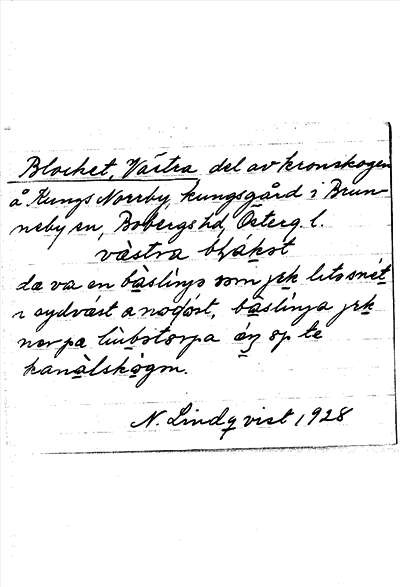 Blocket, Västra del av kronskogen
å Kungs Norrby, kungsgård i Brun-
neby sn, Bobergs hd, Österg. l.
västra blåkət
dæ va en bàslinjə som jek litə snét
i sydvást a nodóst, bàslinja jek
nər pa
kanàlskògən.
N. Lindqvist 1928